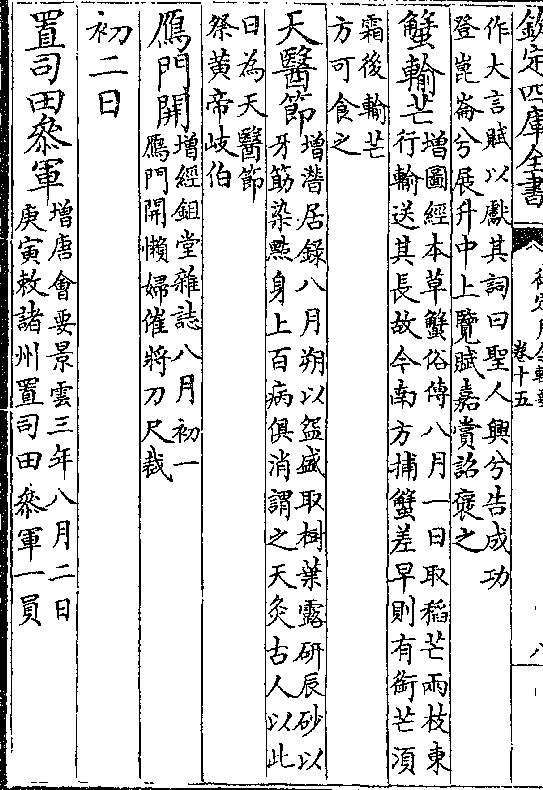 欽定四庫全書
卷十五
八
作大言賦以獻其詞曰聖人興兮告成功
登崑崙兮展升中上覽賦嘉賞詔褒之
蟹輸芒
增圖經本草蟹俗傳八月一日取稻芒兩枝東
行輸送其長故今南方捕蟹差早則有銜芒須
霜後輸芒
方可食之
天醫節
增潛居錄八月朔以盌盛取樹葉露研辰砂以
牙筯染點身上百病俱消謂之天灸古人以此
日為天醫節
祭黃帝岐伯
鴈門開
增經鉏堂雜誌八月初一
鴈門開懶婦催將刀尺裁
初二日
置司田叅軍
增唐會要景雲三年八月二日
庚寅敕諸州置司田叅軍一員